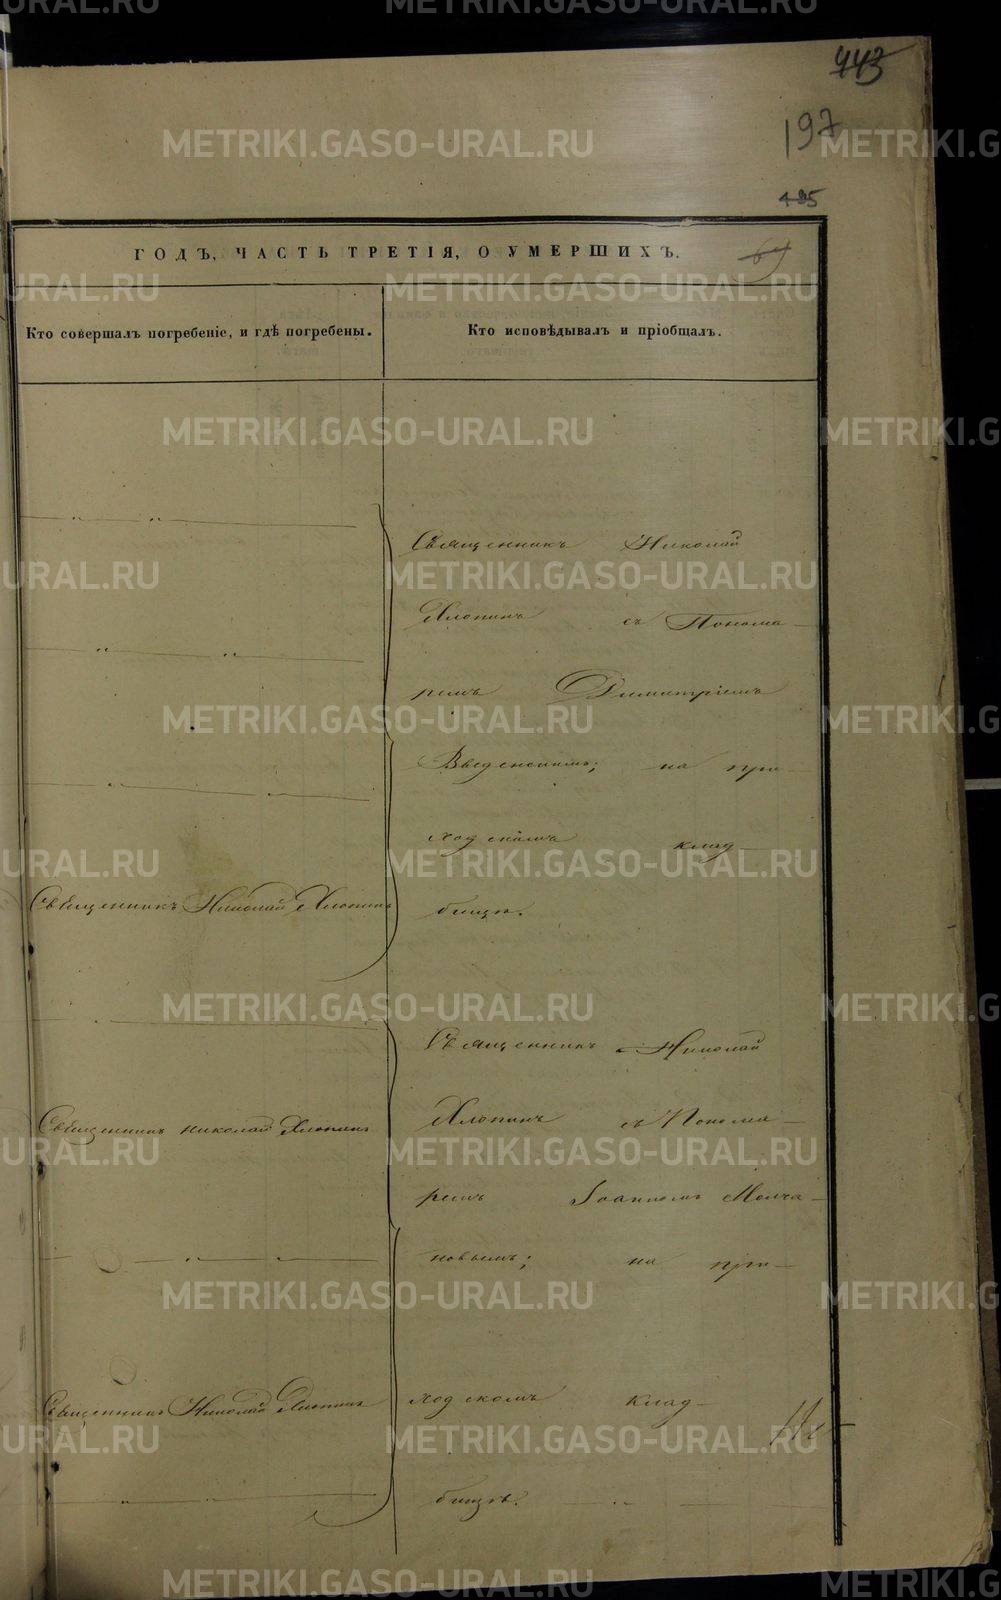 443
197
495
ГОДЪ, ЧАСТЬ ТРЕТІЯ, О УМЕРШИХЪ.
69
Кто совершалъ погребеніе, и гдѣ погребены.
Кто исповѣдывалъ и пріобщалъ.
Священникъ Николай
Хлопинъ съ Понома-
ремъ Димитріемъ
Введенскимъ; на при-
ходскомъ клад-
Священникъ Николай Хлопинъ
бищѣ.
Священникъ Николай
Священникъ Николай Хлопинъ
Хлопинъ съ Понома-
ремъ Іоанномъ Молча-
новымъ; на при-
Священникъ Николай Хлопинъ
ходскомъ клад-
бищѣ.
METRIKI.GASO-URAL.RU